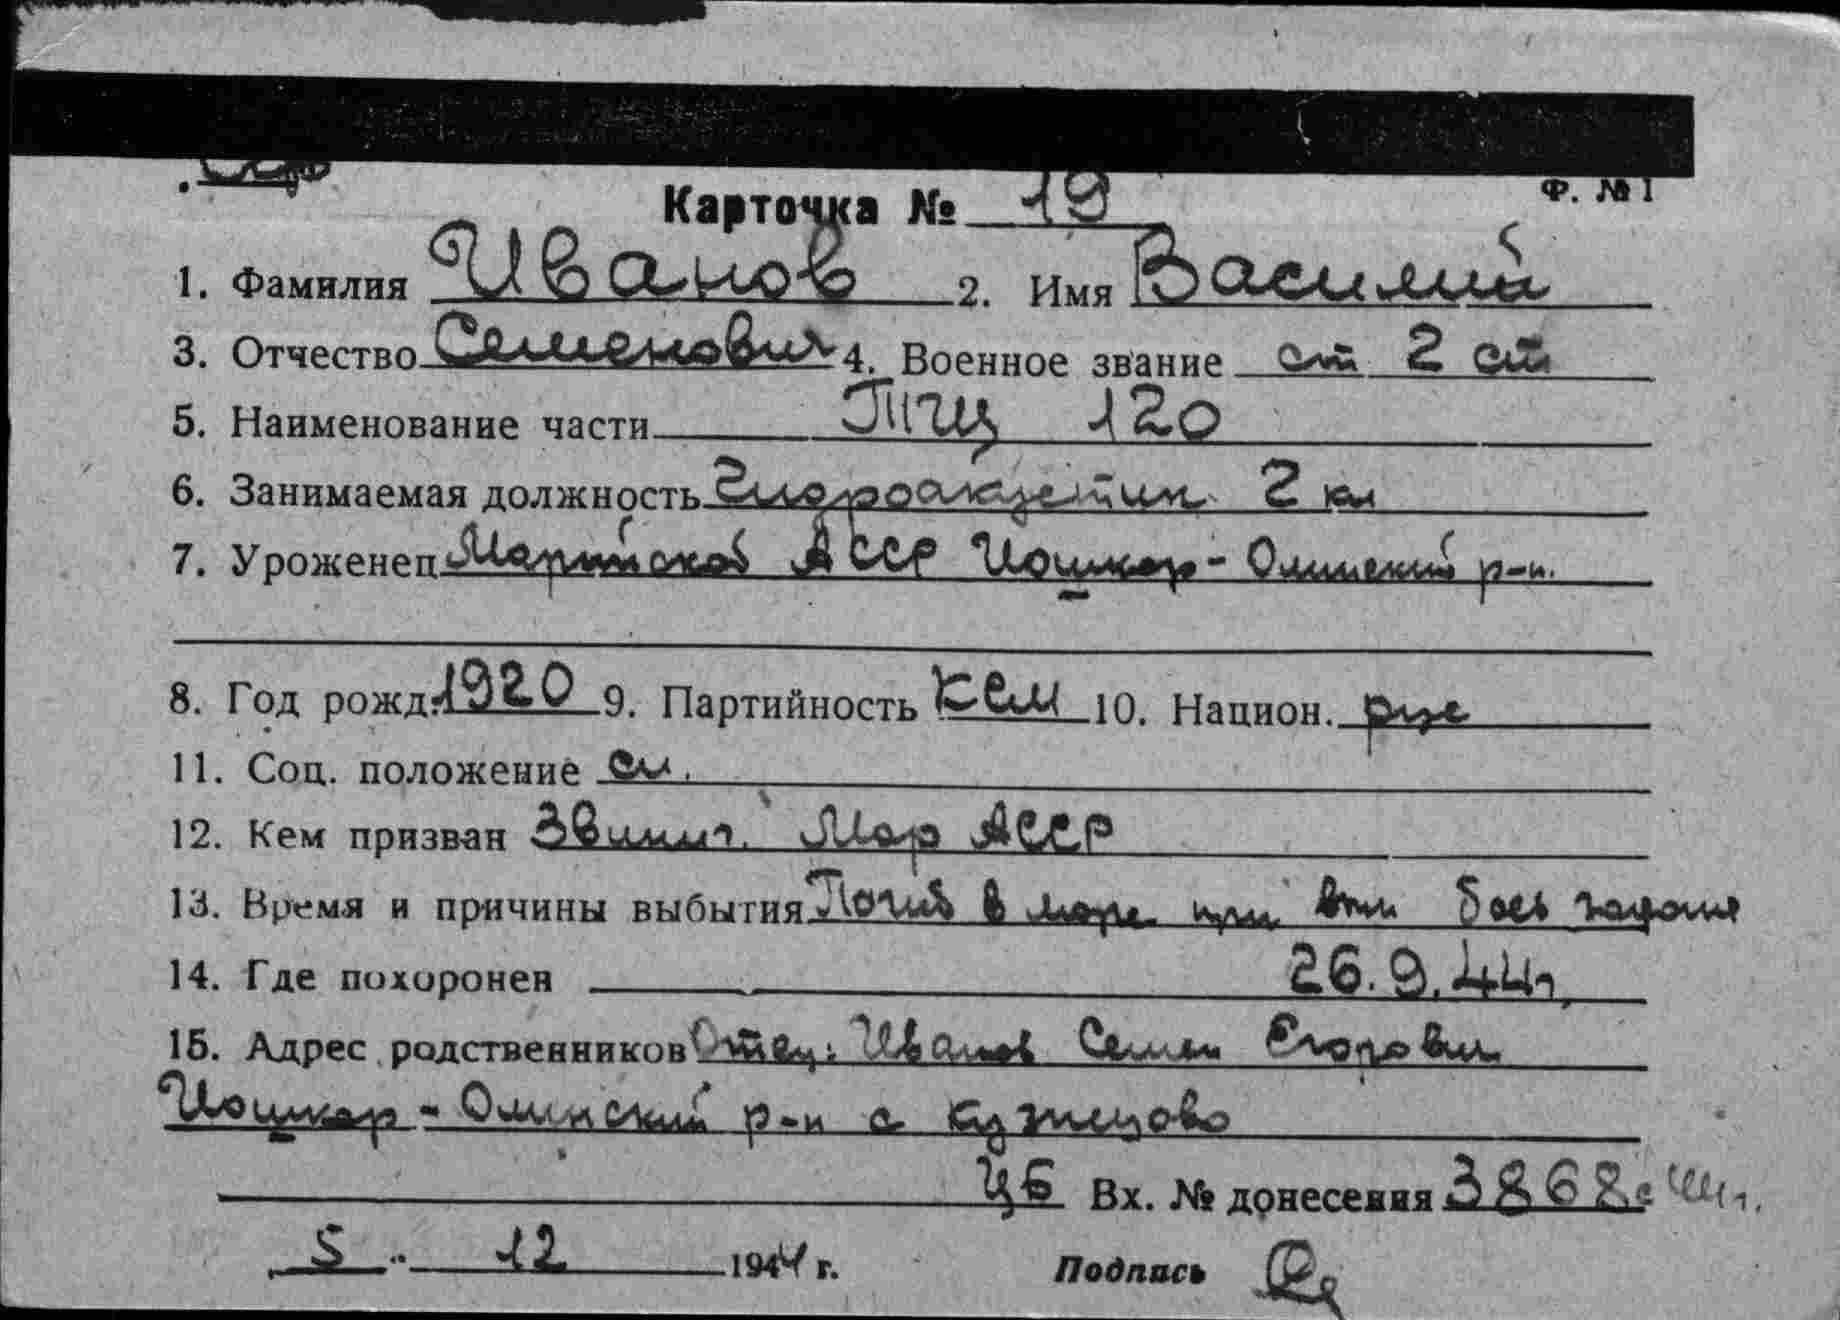 Карточка № 19
Ф. № 1
1. Фамилия Иванов 2. Имя Василий
3. Отчество Семенович 4. Военное звание ст 2 ст
5. Наименование части ТКЩ 120
6. Занимаемая должность Гидроакустик 2 кл
7. Уроженец Марийской АССР Йошкар-Олинский р-н.
8. Год рожд. 1920 9. Партийность 10. Национ. рус
11. Соц. положение сл.
12. Кем призван Мар АССР
13. Время и причины выбытия Погиб в море при вып боев задания
14. Где похоронен 26.9.44г.
15. Адрес родственников Отец: Иванов Семен Егорович
Йошкар-Олинский р-н с Кузнецово
Вх. № донесения 3868с 44г.
5 12 1944 г. Подпись